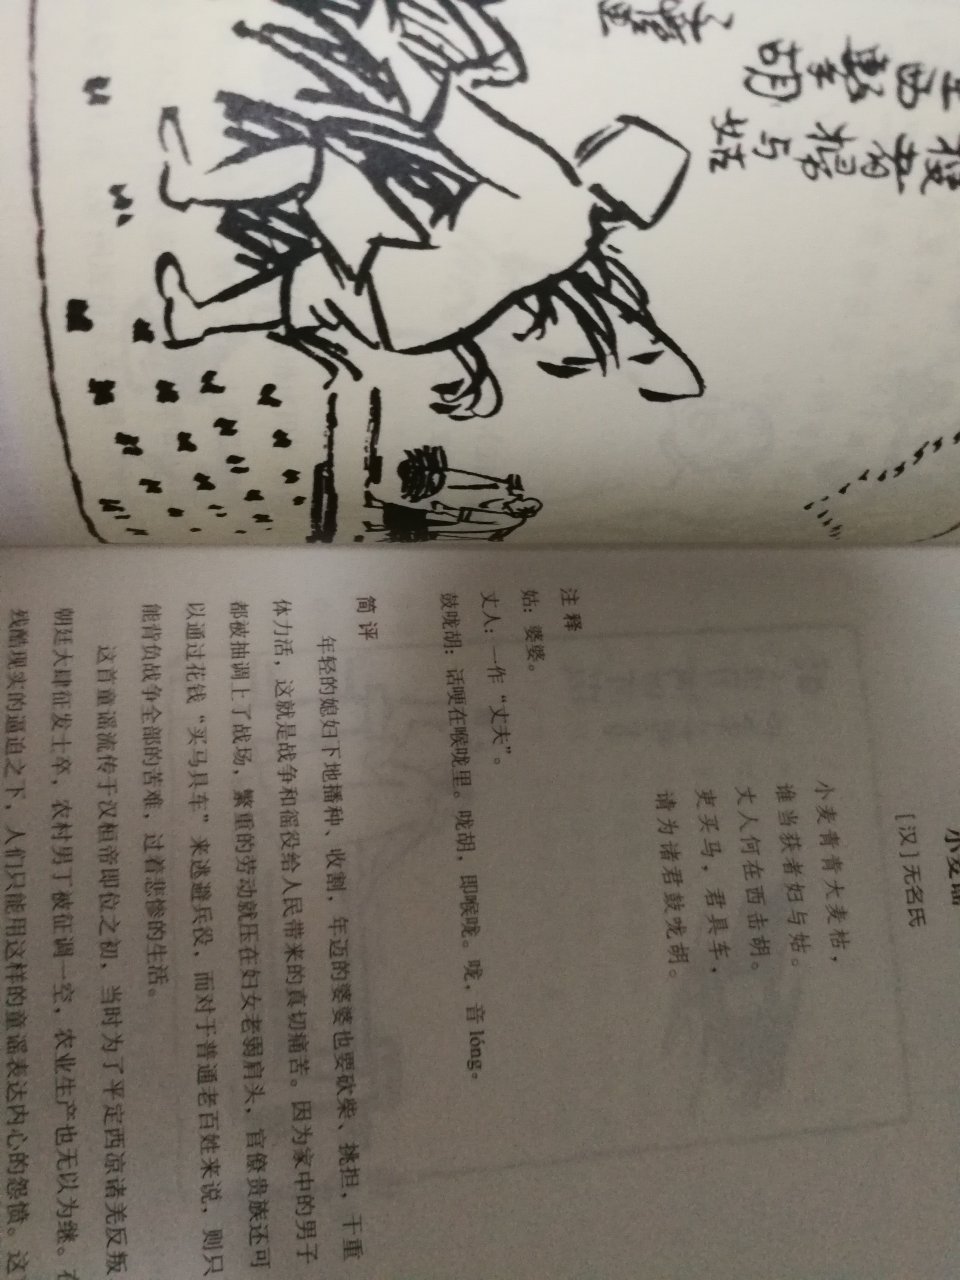 穫者婦与姑
西擊胡
小麦谣
[汉]无名氏
小麦青青大麦枯，
谁当获者妇与姑。
丈人何在西击胡。
吏买马，君具车，
请为诸君鼓咙胡。
注释
姑：婆婆。
丈人：一作“丈夫”。
鼓咙胡：话哽在喉咙里。咙胡，即喉咙。咙，音lóng。
简评
年轻的媳妇下地播种、收割，年迈的婆婆也要砍柴、挑担，干重
体力活，这就是战争和徭役给人民带来的真切痛苦。因为家中的男子
都被抽调上了战场，繁重的劳动就压在妇女老弱肩头，官僚贵族还可
以通过花钱“买马具车”来逃避兵役，而对于普通老百姓来说，则只
能背负战争全部的苦难，过着悲惨的生活。
这首童谣流传于汉桓帝即位之初，当时为了平定西凉诸羌反叛
朝廷大肆征发士卒，农村男丁被征调一空，农业生产也无以为继。在
残酷现实的逼迫之下，人们只能用这样的童谣表达内心的怨愤。这